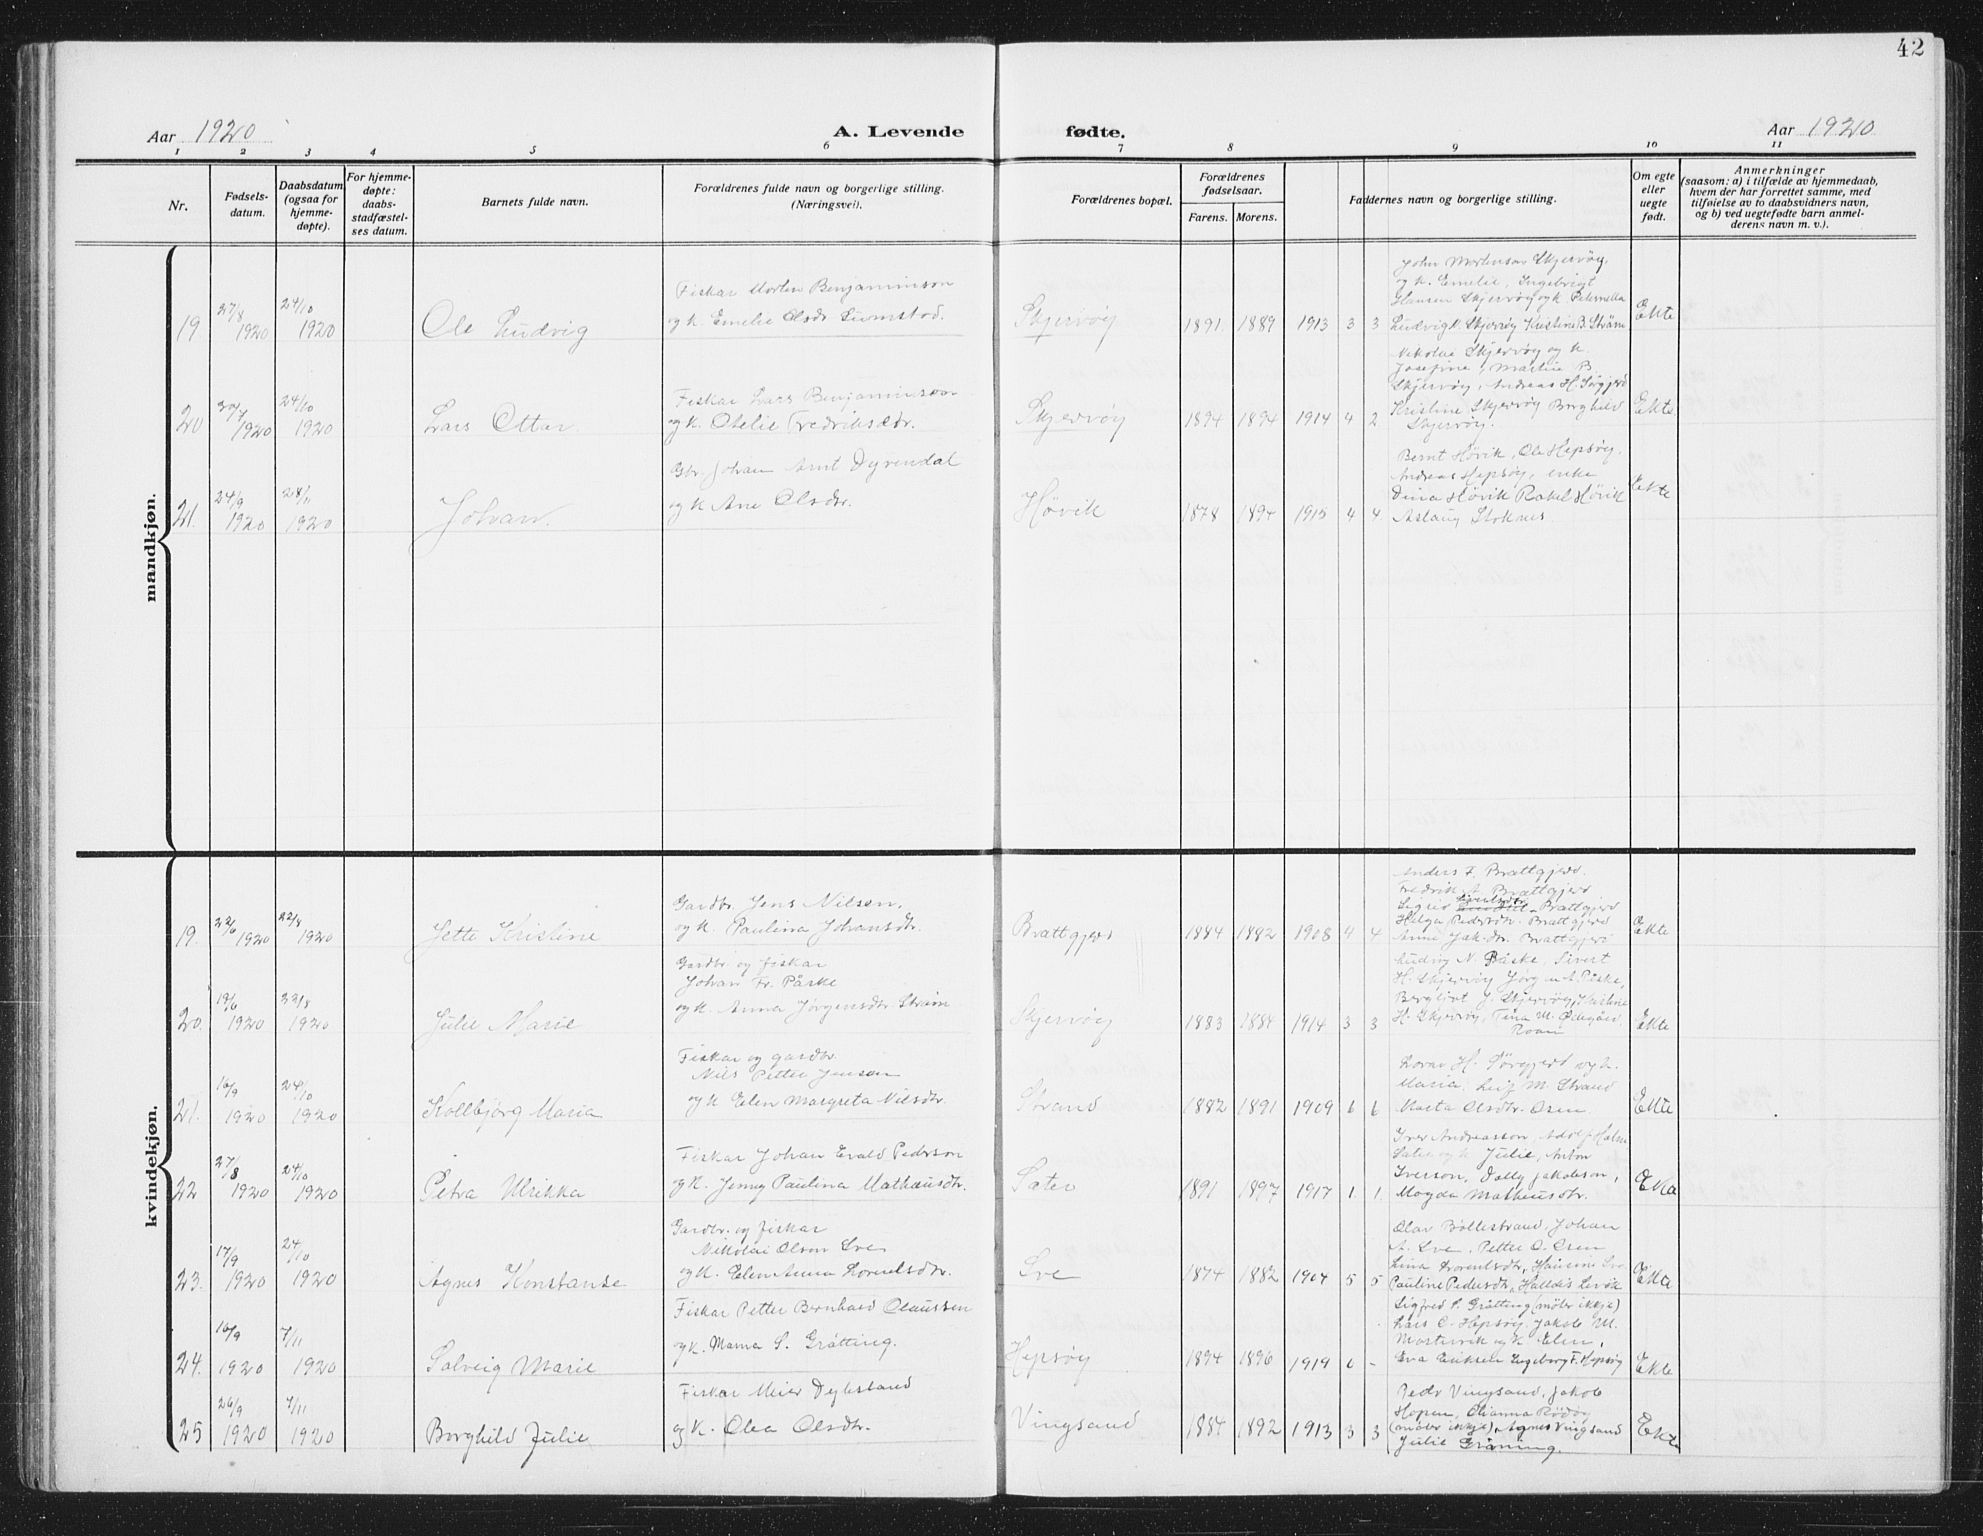 42
Aar 1920 A. Levende fødte. Aar 1920
1 2 3 4 5 6 7 8 9 10 11
Nr.
Fødsels-
datum.
Daabsdatum
(ogsaa for
hjemme-
døpte).
For hjemme-
døpte:
daabs-
stadfæstel-
ses datum.
Barnets fulde navn.
Forældrenes fulde navn og borgerlige stilling.
(Næringsvei).
Forældrenes bopæl.
Forældrenes
fødselsaar.
Farens. Morens.
Faddernes navn og borgerlige stilling.
Om egte
eller
uegte
født.
Anmerkninger
(saasom: a) i tilfælde av hjemmedaab,
hvem der har forrettet samme, med
tilføielse av to daabsvidners navn,
og b) ved uegtefødte barn anmel-
derens navn m. v.).
mandkjøn.
19. 27/8 1920 24/10 1920 Ole Ludvig
Fiskar Morten Benjaminson
og k. Emelie Olsdr.
Skjervøy 1891 1889 1913 3 3
John Mortenson Skjervøy,
og k. Emelie, Ingebrigt
Hansen Skjervøy og k. Peternella
Ludvig N. Skjervøy Kristine B. Strøm
Ekte
20 30/7 1920 24/10 1920 Lars Ottar.
Fiskar Lars Benjaminson
og k. Otelie Fredriksdr.
Skjervøy 1894 1894 1914 4 2
Nikolai Skjervøy og k.
Josefine, Martin B.
Skjervøy, Andreas H. Sørgjerd
Kristine Skjervøy Borghild
Skjervøy.
Ekte
21. 24/9 1920 28/11 1920 Johan.
Gbr. Johan Arnt Dyrendal
og k Ane Olsdr.
Høvik 1878 1894 1915 4 4
Bernt Høvik, Ole Hepsøy,
Andreas Hepsøy, enke
Dina Høvik Rakel Høvik
Aslaug Stoknes
Ekte
kvindekjøn.
19. 22/6 1920 22/8 1920 Jette Kristine
Gardbr. Jens Nilsen,
og k. Paulina Johansdr.
Brattgjerd 1884 1882 1908 4 4
Anders F. Brattgjerd.
Fredrik A. Brattgjerd
Sigrid Brattgjerd
Helga Pedersdr. Brattgjerd
Anne Jak.dr. Brattgjerd
Ekte
20. 19/6 1920 22/8 1920 Julie Marie
Gardbr. og fiskar
Johan Fr. Påske
og k. Anna Jørgensdr. Strøm
Skjervøy 1883 1884 1914 3 3
Ludvig N. Påske, Sivert
H. Skjervøy Jørgen A. Påske,
Bergljot J. Skjervøy, Kristine
H. Skjervøy, Tina M. Ødegård,
Roan
Ekte
21. 16/9 1920 24/10 1920 Kollbjørg Maria
Fiskar og gardbr.
Nils Petter Jensen
og k Elen Margreta Nilsdtr.
Strand 1882 1891 1909 6 6
H. Sørgjerd og k.
Maria. Leif M. Strand
Marta Olsdtr. Osen.
Ekte
22 27/8 1920 24/10 1920 Petra Ulrikka
Fiskar Johan Evald Pederson
og k. Jenny Paulina Matheusdtr.
Sæter 1891 1897 1917 1. 1.
Iver Andreasson, Adolf Holm
Sæter og k Julie, Anton
Iverson, Dolly Jakobson,
Magda Matheusdtr.
Ekta
23. 17/9 1920 24/10 1920 Agnes Konstanse
Gardbr. og fiskar
Nikolai Olson Sve
og k. Elen Anna Lorentsdtr.
Sve 1874 1882 1904 5 5
Olav Bøllestrand, Johan
A. Sve, Petter O. Osen
Lina Lorentsdtr, Hansine Sve
Pauline Pedersdtr, Halldis Levik
Ekta
24. 16/9 1920 7/11 1920 Solveig Marie
Fiskar Petter Bernhard Claussen
og k. Mama S. Grøtting.
Hepsøy 1894 1896 1919 0 -
Sigfred S. Grøtting (møter ikkje)
Lars O. Hepsøy, Jakob M.
og k Elen,
Eva Eriksen Ingeborg F. Hepsøy
Ekte
25 26/9 1920 7/11 1920 Borghild Julie
Fiskar Meier Dybstrand
og k. Olea Olsdtr.
Vingsand 1884 1892 1913 3 3
Pedr Vingsand, Jakob
Hopen, Rødøy
(møter ikkje), Agnes Vingsand
Julie Grøning.
Ekte